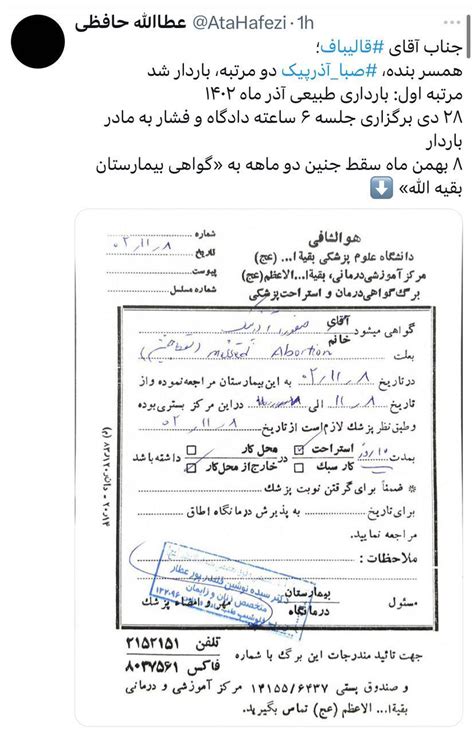 عطاالله حافظی @AtaHafezi · 1h
جناب آقای #قالیباف؛
همسر بنده، #صبا_آذرپیک دو مرتبه، باردار شد
مرتبه اول: بارداری طبیعی آذر ماه ۱۴۰۲
۲۸ دی برگزاری جلسه ۶ ساعته دادگاه و فشار به مادر
باردار
۸ بهمن ماه سقط جنین دو ماهه به «گواهی بیمارستان
بقیه الله» ⬇️
هوالشافی
دانشگاه علوم پزشکی بقیةا... (عج)
مرکز آموزشی درمانی، بقیةا...الاعظم(عج)
برگ گواهی درمان و استراحت پزشکی
شماره
تاریخ ۰۲/۱۱/۸
پیوست
شماره مسلسل
گواهی میشود آقای خانم
بعلت missed Abortion
در تاریخ ۰۲/۱۱/۸ به این بیمارستان مراجعه نموده و از
تاریخ ۱۱/۸ الی در این مرکز بستری بوده
و طبق نظر پزشک لازم است از تاریخ ۰۲/۱۱/۸
بمدت ۱۰ روز استراحت کار سبک در محل کار خارج از محل کار داشته باشد
* ضمناً برای گرفتن نوبت پزشک
برای تاریخ به پذیرش درمانگاه اطاق
مراجعه نمایید.
ملاحظات:
متخصص زنان و زایمان
مسئول بیمارستان درمانگاه مهر و امضاء پزشک
جهت تائید مندرجات این برگ با شماره
تلفن ۲۱۵۲۱۵۱
فاکس ۸۰۳۷۵۶۱
و صندوق پستی ۱۴۱۵۵/۶۴۳۷ مرکز آموزشی و درمانی
بقیةا... الاعظم (عج) تماس بگیرید.